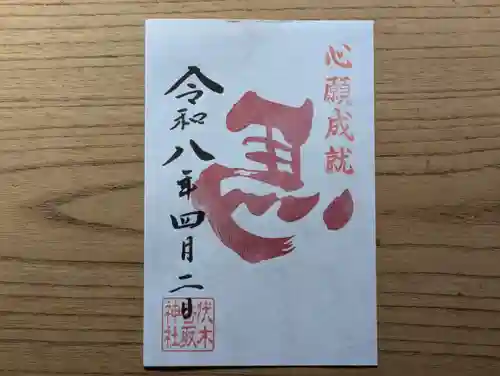 心願成就
令和八年四月二日
伏木
神社